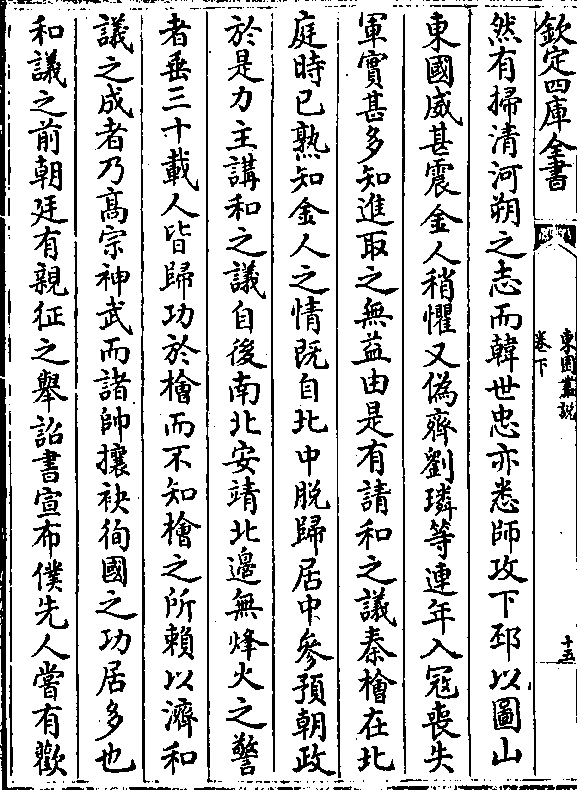 欽定四庫全書
東園叢說
卷下
十五
然有掃清河朔之志而韓世忠亦悉師攻下邳以圖山
東國威甚震金人稍懼又偽齊劉璘等連年入冦喪失
軍實甚多知進取之無益由是有請和之議秦檜在北
庭時已熟知金人之情既自北中脫歸居中參預朝政
於是力主講和之議自後南北安靖北邊無烽火之警
者垂三十載人皆歸功於檜而不知檜之所賴以濟和
議之成者乃髙宗神武而諸帥攘袂徇國之功居多也
和議之前朝廷有親征之舉詔書宣布僕先人嘗有歡